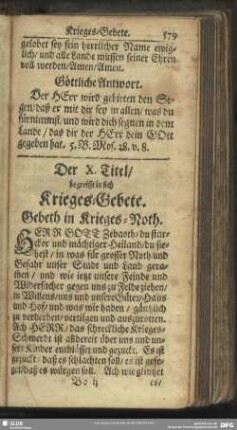 Krieges-Gebete. 579
gelobet sey sein herrlicher Name ewig-
lich/ und alle Lande müssen seiner Ehren
voll werden/Amen/Amen.
Göttliche Antwort.
Der HErr wird gebieten den Se-
gen/daß er mit dir sey in allen/was du
fürnimmst/und wird dich segnen in dem
Lande/das dir der HErr dein GOtt
gegeben hat. 5. B. Mos. 28. v. 8.
Der X. Titel/
begreifft in sich
Krieges-Gebete.
Gebeth in Krieges-Noth.
HERR GOTT Zebaoth/du star-
cker und mächtiger Heiland/du sie-
hest/ in was für grosser Noth und
Gefahr unser Stadt und Land gera-
then/ und wie itzt unsere Feinde und
Widersacher gegen uns zu Felde ziehen/
in Willens/uns und unsere Güter/Haus
und Hof/ und was wir haben/ gäntzlich
zu verderben/vertilgen und auszurotten.
Ach HERR/das schreckliche Krieges-
Schwerdt ist allbereit über uns und un-
sere Kinder entblösset und gezuckt. Es ist
gezuckt/ daß es schlachten soll/ es ist gefe-
get/daß es würgen soll. Ach wie glintzet
Oo ij es/
SLUB